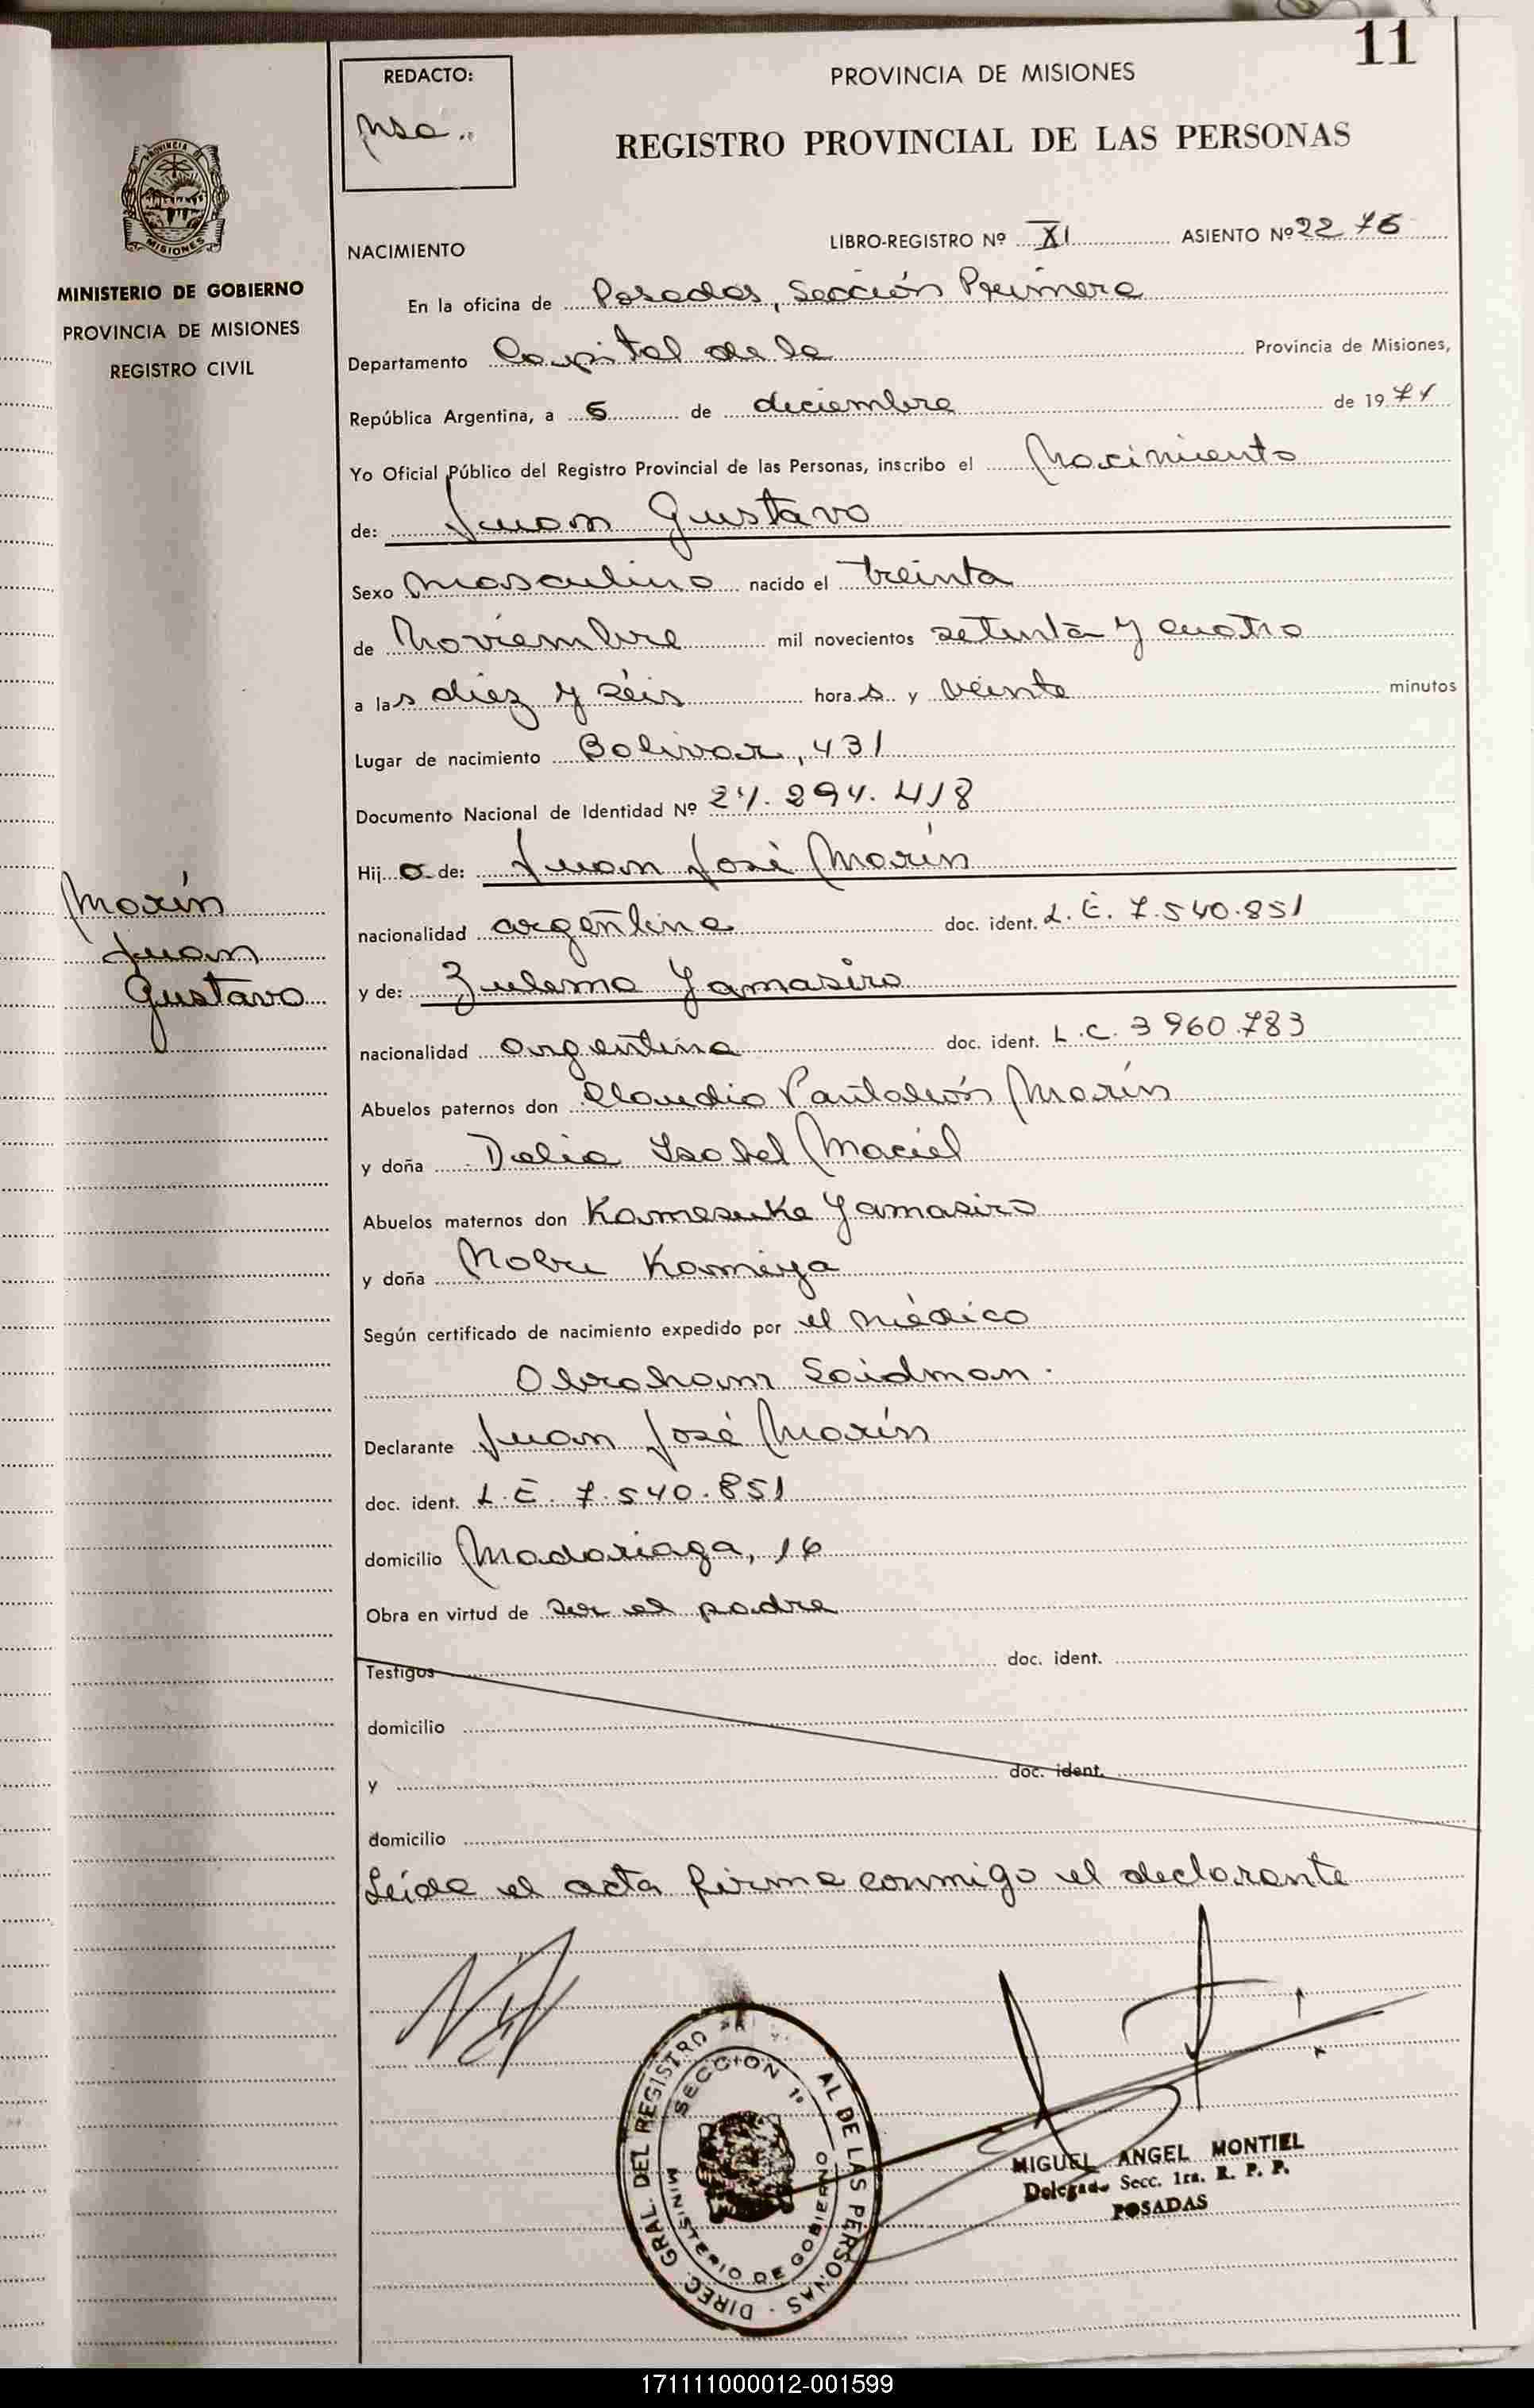 11
REDACTO:
PROVINCIA DE MISIONES
REGISTRO PROVINCIAL DE LAS PERSONAS
PROVINCIA
MISIONES
MINISTERIO DE GOBIERNO
PROVINCIA DE MISIONES
REGISTRO CIVIL
NACIMIENTO LIBRO-REGISTRO Nº XI ASIENTO Nº 2276
En la oficina de Posadas, Sección Primera
Departamento Capital de la Provincia de Misiones,
República Argentina, a 5 de diciembre de 1974
Yo Oficial Público del Registro Provincial de las Personas, inscribo el Nacimiento
de: Juan Gustavo
Sexo masculino nacido el treinta
de Noviembre mil novecientos setenta y cuatro
a las diez y séis horas y veinte minutos
Lugar de nacimiento Bolivar, 431
Documento Nacional de Identidad Nº 24.294.418
Hijo de: Juan José Marín
Marín
Juan
Gustavo
nacionalidad argentina doc. ident. L.E. 7.540.851
y de: Zulema Yamasiro
nacionalidad argentina doc. ident. L.C. 3960.783
Abuelos paternos don Claudio Pantaleón Marín
y doña Delia Isabel Maciel
Abuelos maternos don Kamesuke Yamasiro
y doña Nobu Kamiya
Según certificado de nacimiento expedido por el médico
Abraham Saidman.
Declarante Juan José Marín
doc. ident. L.E. 7.540.851
domicilio Madariaga, 16
Obra en virtud de ser el padre
Testigos doc. ident.
domicilio
y doc. ident.
domicilio
Leída el acta firma conmigo el declarante
DIREC. GRAL. DEL REGISTRO AL DE LAS PERSONAS
SECCION 1ª
MINISTERIO DE GOBIERNO
MIGUEL ANGEL MONTIEL
Delegado Secc. 1ra. R. P. P.
POSADAS
171111000012-001599